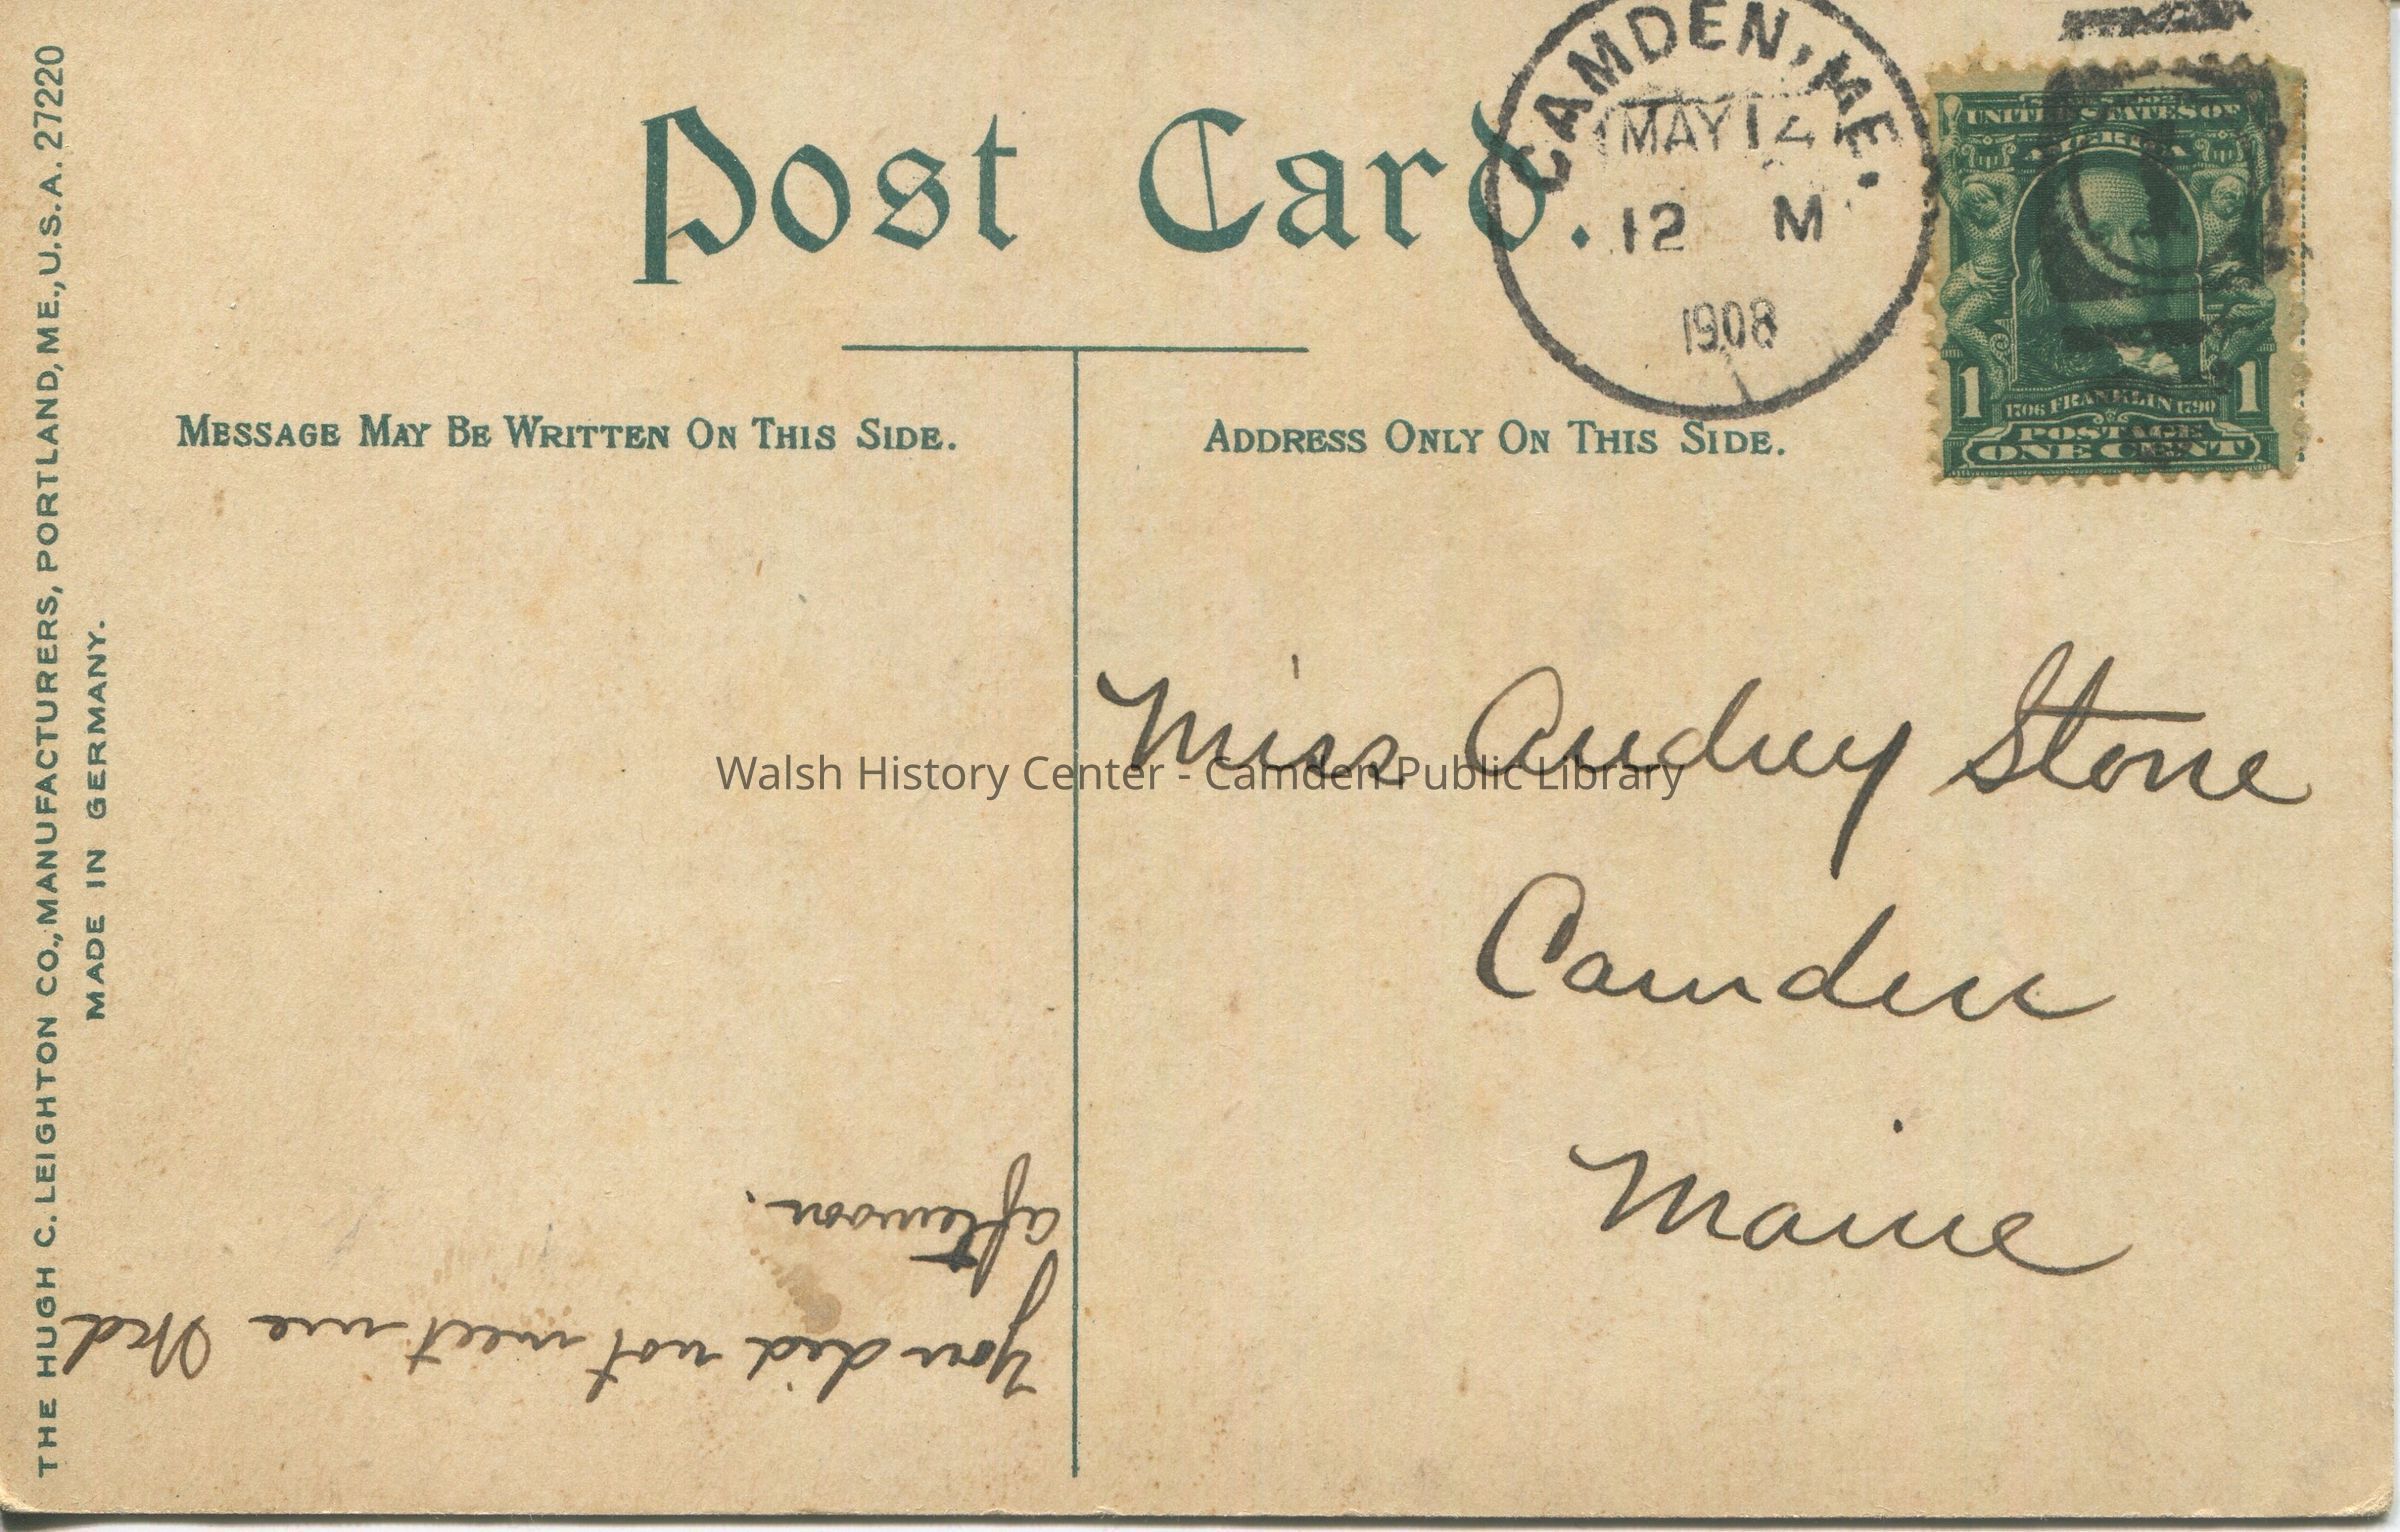 THE HUGH C. LEIGHTON CO., MANUFACTURERS, PORTLAND, ME., U.S.A. 27220
MADE IN GERMANY.
Post Card.
CAMDEN, ME.
MAY 14
12 M
1908
UNITED STATES OF
AMERICA
1 1
1706 FRANKLIN 1790
POSTAGE
ONE CENT
MESSAGE MAY BE WRITTEN ON THIS SIDE.
ADDRESS ONLY ON THIS SIDE.
Miss Audrey Stone
Camden
Maine
Walsh History Center - Camden Public Library
You did not meet me Wed
afternoon.